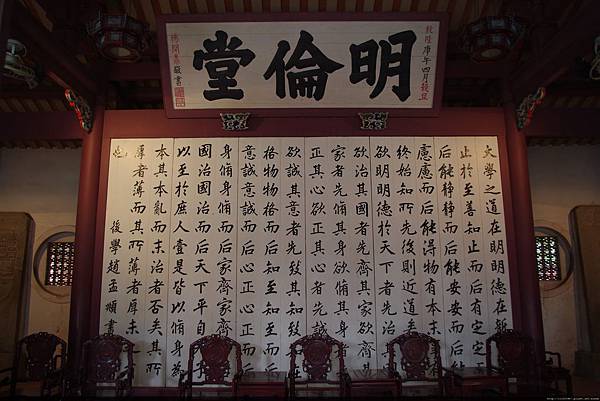 明倫堂
乾隆庚午四月穀旦
楊開鼎敬書
大學之道在明明德在親
止於至善知止而后有定
后能靜靜而后能安安而后
慮慮而后能得物有本末
終始知所先後則近道矣
欲明明德於天下者先治
欲治其國者先齊其家欲齊其
家者先脩其身欲脩其身
正其心欲正其心者先誠
欲誠其意者先致其知
格物物格而后知至知至
意誠意誠而后心正心正
身脩身脩而后家齊家齊
國治國治而后天下平自
以至於庶人壹是皆以脩身為
本其本亂而末治者否矣其所
厚者薄而其所薄者厚未
也
後學趙孟頫書